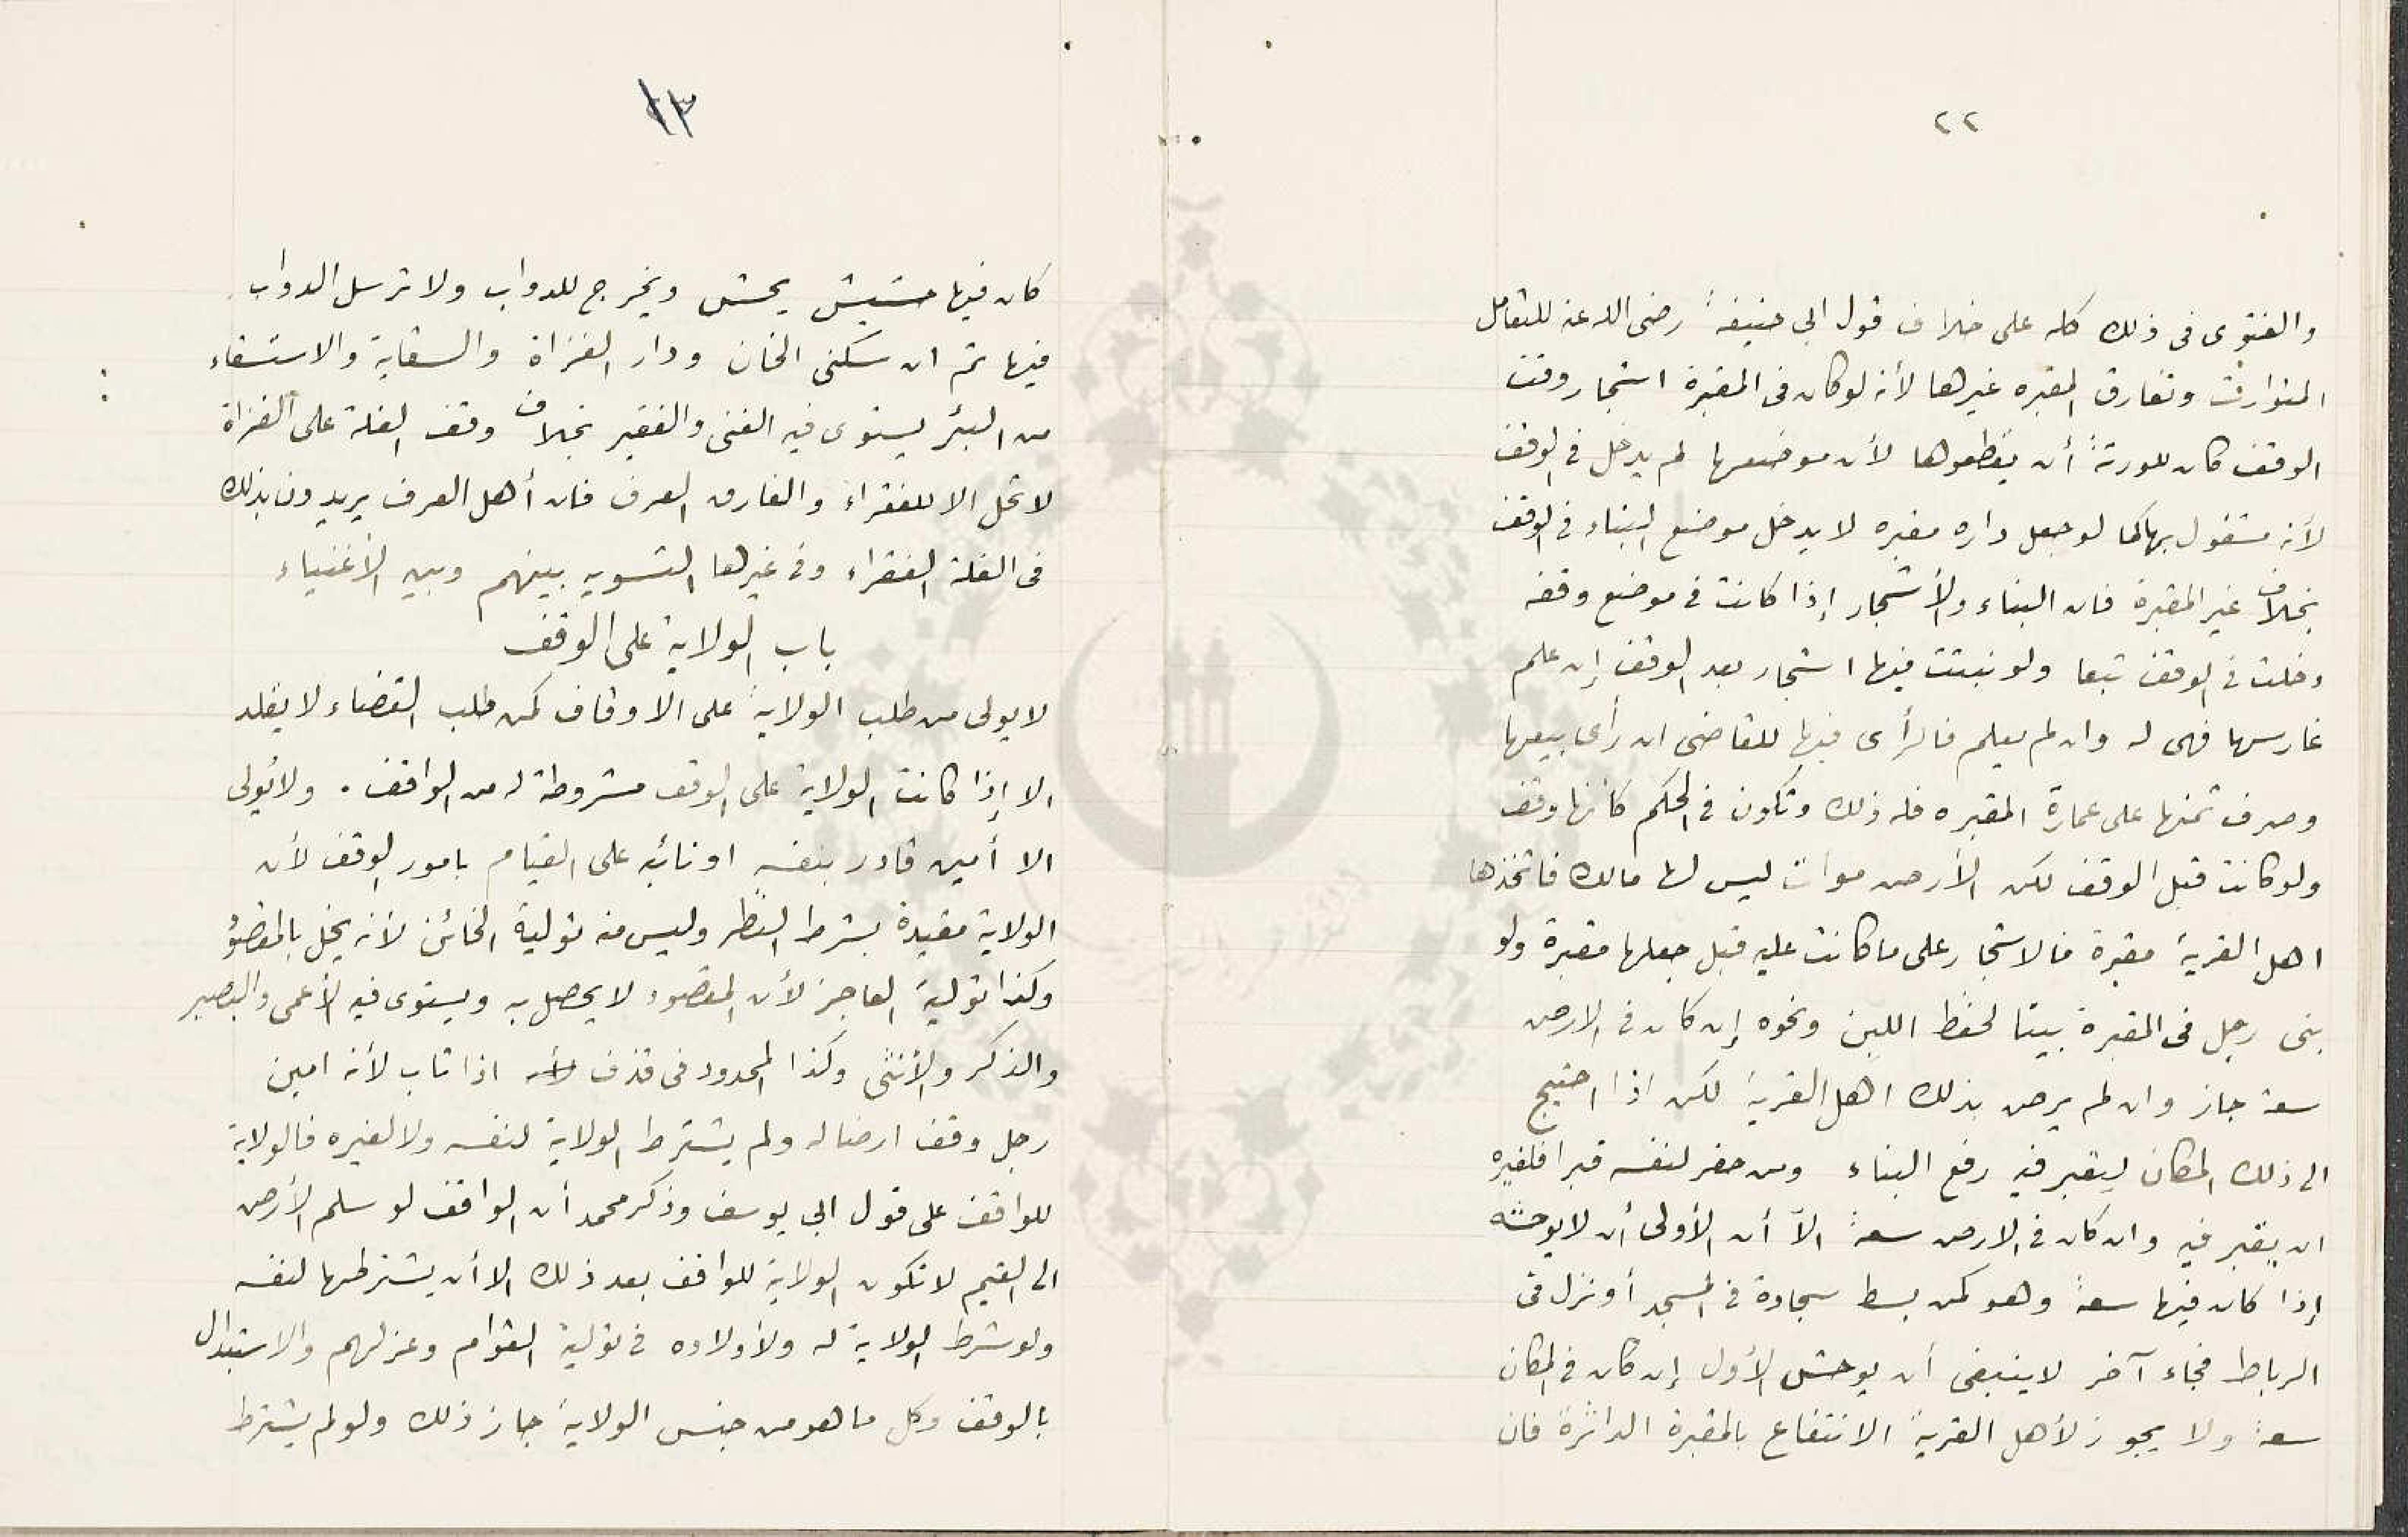 ٢٢
والفتوى فى ذلك كله على خلاف قول ابى حنيفة رضى الله عنه للتعامل
المتوارث وتفارق المقبره غيرها لأنه لو كان فى المقبرة اشجار وقت
الوقف كان للورثة أن يقطعوها لأن موضعها لم يدخل فى الوقف
لأنه مشغول بها كما لو جعل داره مقبره لا يدخل موضع البناء فى الوقف
بخلاف غير المقبرة فان البناء والأشجار إذا كانت فى موضع وقفه
دخلت فى الوقف تبعا ولو نبتت فيها اشجار بعد الوقف إن علم
غارسها فهى له وان لم يعلم فالرأى فيها للقاضى ان رأى بيعها
وصرف ثمنها على عمارة المقبره فله ذلك وتكون فى الحكم كأنها وقف
ولو كانت قبل الوقف لكن الأرض موات ليس لها مالك فاتخذها
اهل القرية مقبرة فالاشجار على ما كانت عليه قبل جعلها مقبرة ولو
بنى رجل فى المقبرة بيتا لحفظ اللبن ونحوه إن كان فى الارض
سعة جاز وان لم يرض بذلك اهل القرية لكن اذا احتيج
الى ذلك المكان ليقبر فيه رفع البناء ومن حفر لنفسه قبرا فلغيره
ان يقبر فيه وان كان فى الارض سعة الآ أن الأولى أن لا يوحشه
إذا كان فيها سعة وهو كمن بسط سجادة فى المسجد أو نزل فى
الرباط فجاء آخر لا ينبغى أن يوحش الأول إن كان فى المكان
سعة ولا يجوز لأهل القرية الانتفاع بالمقبرة الداثرة فان
٢٣
كان فيها حشيش يحش ويخرج للدواب ولا ترسل الدواب
فيها ثم ان سكنى الخان ودار الغزاة والسقاية والاستسقاء
من البئر يستوى فيه الغنى والفقير بخلاف وقف الغلة على الغزاة
لا تحل الا للفقراء والفارق العرف فان أهل العرف يريدون بذلك
فى الغلة الفقراء وفى غيرها التسويه بينهم وبين الأغنياء
باب الولاية على الوقف
لا يولى من طلب الولاية على الاوقاف كمن طلب القضاء لا يقلد
الا إذا كانت الولاية على الوقف مشروطة له من الواقف . ولا يولى
الا أمين قادر بنفسه او نائبه على القيام بامور الوقف لأن
الولاية مقيدة بشرط النظر وليس منه تولية الخائن لأنه يخل بالمقصود
وكذا تولية العاجز لأن المقصود لا يحصل به ويستوى فيه الأعمى والبصير
والذكر والأنثى وكذا المحدود فى قذف اذا تاب لأنه امين
رجل وقف ارضا له ولم يشترط الولاية لنفسه ولا لغيره فالولاية
للواقف على قول ابى يوسف وذكر محمد أن الواقف لو سلم الأرض
الى القيم لا تكون الولاية للواقف بعد ذلك الا أن يشترطها لنفسه
ولو شرط الولاية له ولأولاده فى تولية القوام وعزلهم والاستبدال
بالوقف وكل ما هو من جنس الولاية جاز ذلك ولو لم يشترط